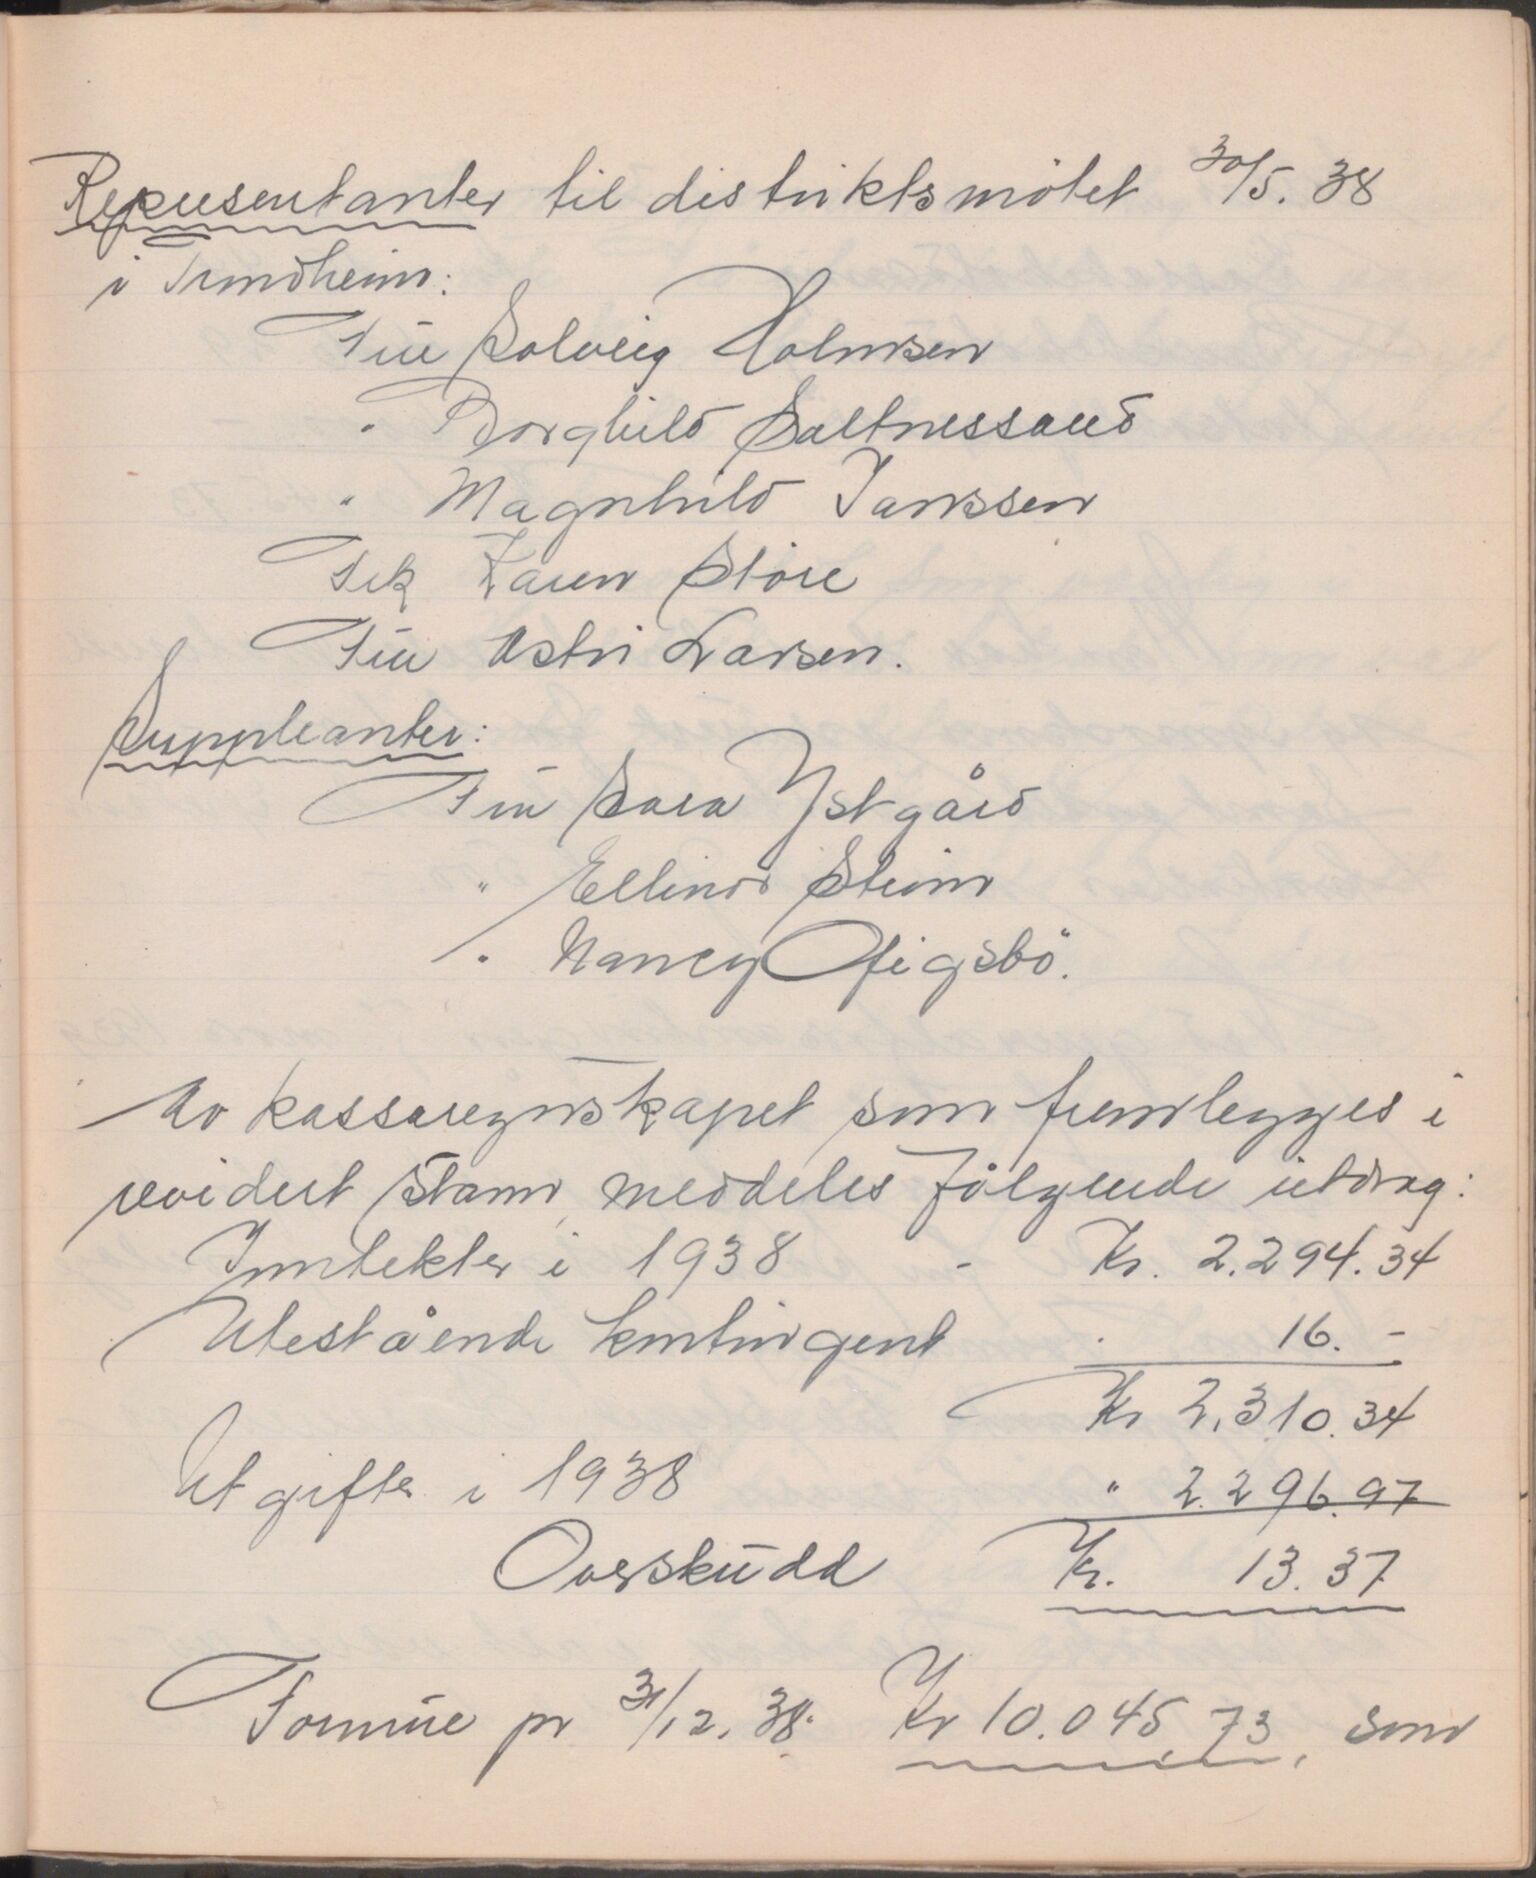 Representanter til distriktsmötet 30/5. 38
i Trondheim:
Fru Solveig Holmsen
" Borghild Saltnessand
" Magnhild Janssen
Frk Karen Störe
Fru Astri Larsen.
Suppleanter:
Fru Sara Ystgård
" Ellinor Steim
" Nancy Ofigsbö.
Av kassaregnskapet som fremlegges i
revidert stann meddeles fölgende utdrag:
Inntekter i 1938 - Kr. 2.294.34
Utestående kontingent " 16. -
Kr 2.310.34
Utgifter i 1938 " 2.296.97
Overskudd Kr. 13.37
Formue pr 31/12. 38. Kr 10.045,73, som